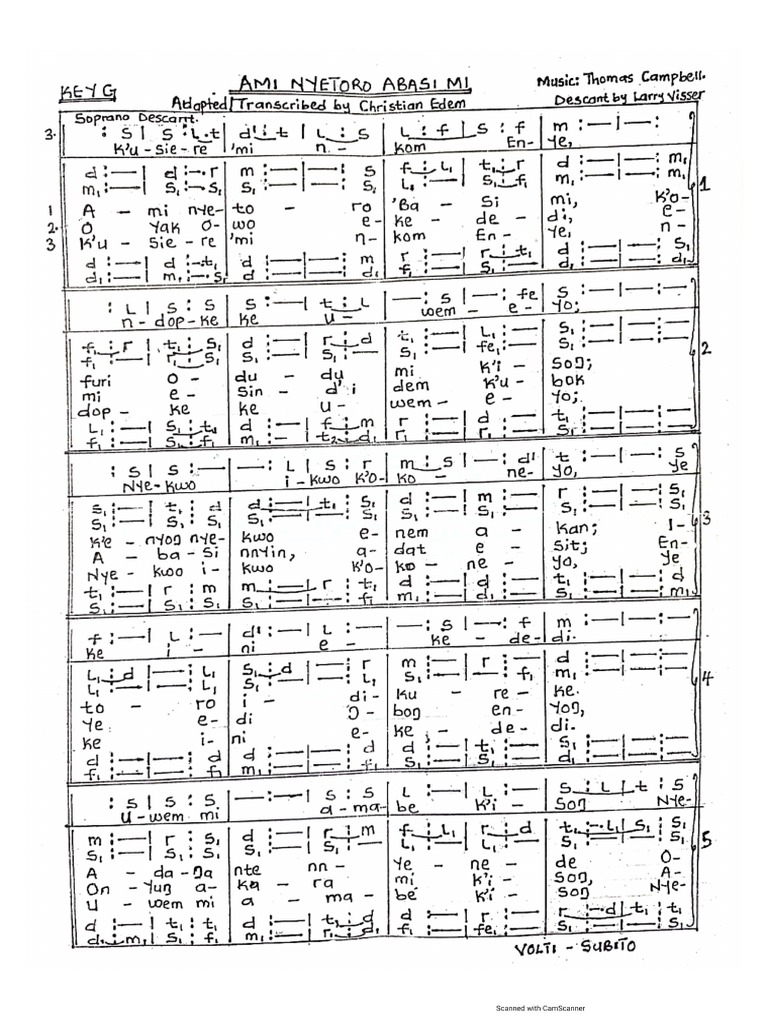 AMI NYETORO ABASI MI
KEY G
Music: Thomas Campbell.
Adapted/Transcribed by Christian Edem
Descant by Larry Visser
Soprano Descant.
3. : s | s : l . t | d' : t | l : s | l : f | s : f | m : — | — :
K'u - sie - re 'mi n - kom En- ye,
d : — | d : — r | m : — | — : s | f : l₁ | t₁ : r | d : — | — : m₁
m₁ : — | s₁ : — s₁ | s₁ : — | — : s₁ | l₁ : — | s₁ : f₁ | m₁ : — | — : m₁
1
1 A - mi nye- to - ro 'Ba - si mi, K'o-
2. O yak O- wo e- ke - de - di, e -
3 K'u - sie - re 'mi n- kom En - ye, n -
d : — | d : — t₁ | d : — | — : m | r : — | r : t₁ | d : — | — : s₁
d₁ : — | m₁ : — s₁ | d : — | — : d₁ | f₁ : — | s₁ : — | d : — | — : d₁
: l | s : s | s : — | t : l | — : s | — : fe | s : — | — :
n - dop - ke ke u - wem - e - yo;
f₁ : r | t₁ : s₁ | d : — | r : d | t₁ : — | l₁ : — | s₁ : — | — :
f₁ : — | r₁ : s₁ | s₁ : — | — : s₁ | s₁ : — | fe₁ : — | s₁ : — | — :
2
furi o - du - du mi k'i - soŋ;
mi e - sin - d'i dem k'u - bok
dop - ke ke u - wem - e - yo;
l₁ : — | s₁ : t₂ | d : — | f : m | r : — | d : — | t₁ : — | — :
f₁ : — | s₁ : f₁ | m₁ : — | t₂ : d₁ | r₁ : — | r₁ : — | s₁ : — | — :
: s | s : — | — : l | s : r | m : s | — : d' | t : — | — : s
Nye - kwo i - kwo K'o- ko - ne- yo, ye
s₁ : — | t₁ : d | d : — | t₁ : s₁ | d : — | m : — | r : — | — : s₁
s₁ : — | s₁ : s₁ | s₁ : — | — : s₁ | s₁ : — | s₁ : — | s₁ : — | — : s₁
3
k'e - nyoŋ nye- kwo e- nem a - kan; I-
A - ba - si nnyin, a- dat e - sit; En-
Nye - kwo i - kwo K'o- ko - ne - yo, ye
t₁ : — | r : m | m : — | r : t₁ | d : — | d : — | t₁ : — | — : d
s₁ : — | s₁ : s₁ | s₁ : — | — : f₁ | m₁ : — | d₁ : — | s₁ : — | — : m₁
f : — | l : — | d' : — | l : — | — : s | — : f | m : — | — :
ke i - ni e - ke - de- di.
l₁ : d | — : l₁ | s₁ : d | — : r | m : — | r : f₁ | d : — | — :
l₁ : — | — : l₁ | s₁ : — | — : l₁ | s₁ : — | — : f₁ | m₁ : — | — :
4
to - ro i - di - ku - re - ke.
ye e- di Ɔ - boŋ en - yoŋ,
ke i- ni e- ke - de - di.
d : — | — : d | d : — | — : d | d : — | t₁ : — | s₁ : — | — :
f₁ : — | — : f₁ | m₁ : — | — : f₁ | s₁ : — | s₁ : — | d₁ : — | — :
: s | s : s | — : — | s : s | l : — | l : — | s : l | t : s
u - wem mi a - ma- be k'i - soŋ Nye-
m : — | r : s₁ | d : — | r : m | f : l₁ | r : d | t₁ : l₁ | s₁ : s₁
s₁ : — | s₁ : s₁ | s₁ : — | — : s₁ | l₁ : — | l₁ : — | s₁ : — | — : s₁
5
A - da - ŋa nte nn - ye - ne - de O-
On - yuŋ a- ka - ra mi k'i - soŋ, A-
U - wem mi a - ma - be k'i - soŋ Nye-
d : — | t₁ : t₁ | d : — | t₁ : d | d : — | r : — | r : d | t₁ : t₁
d₁ : m₁ | s₁ : f₁ | m₁ : — | r₁ : d₁ | f₁ : — | fe₁ : — | s₁ : — | — : s₁
VOLTI - SUBITO
Scanned with CamScanner